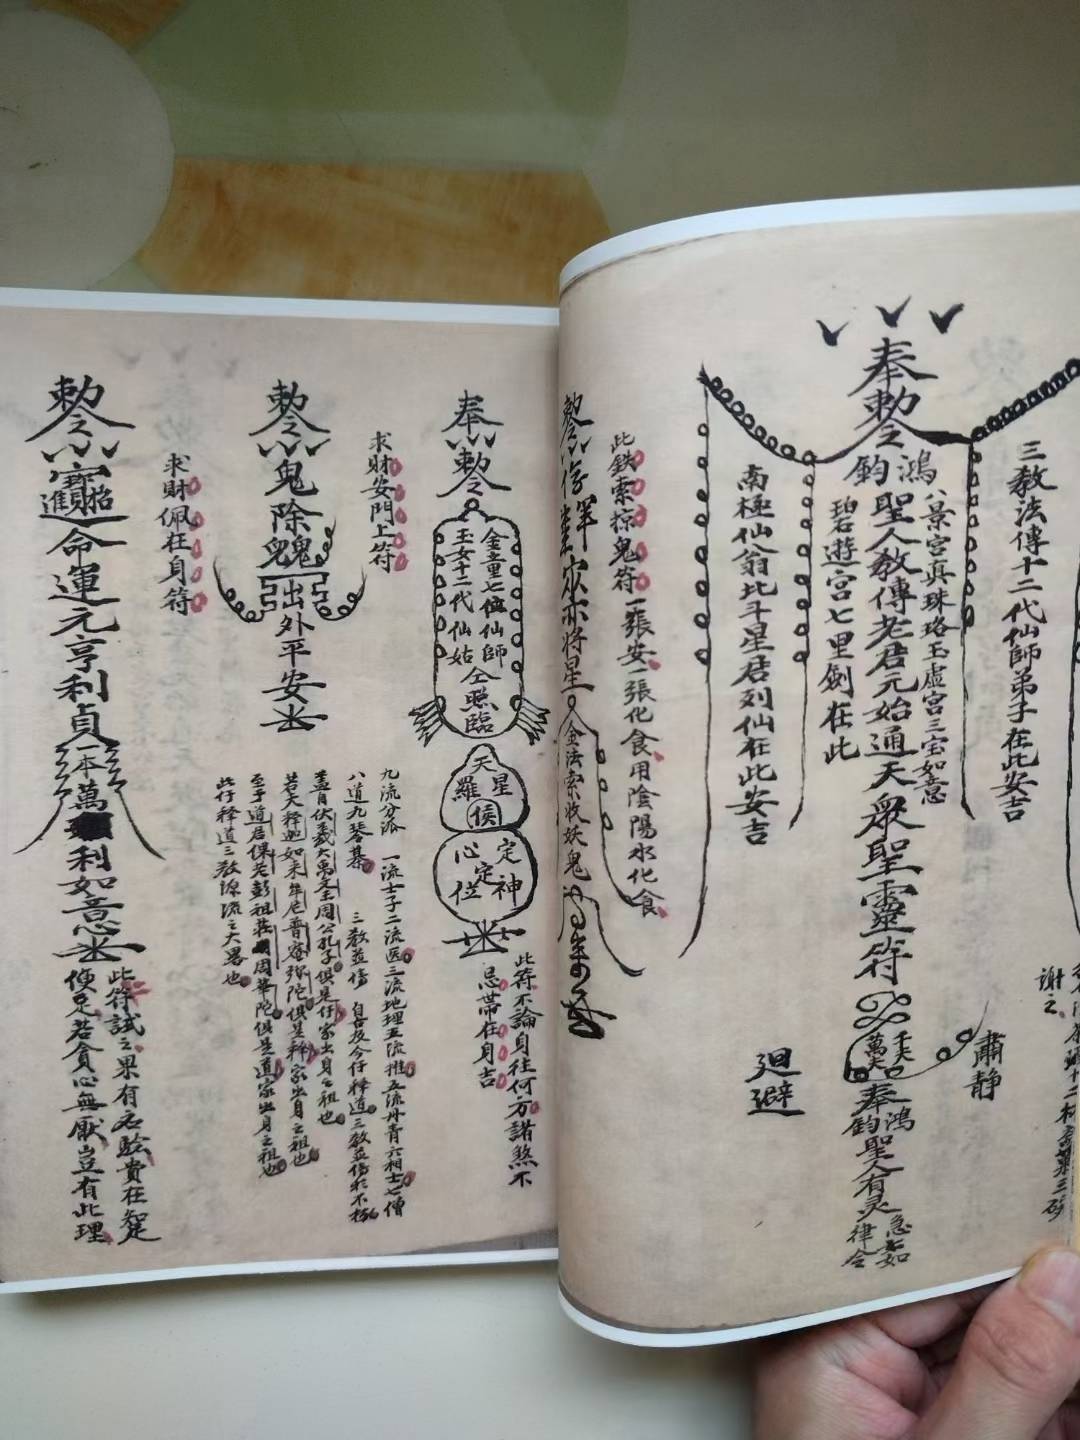 三教法傳十二代仙師弟子在此安吉
八景宮真珠珞玉虛宮三宝如意
奉敕令
鴻鈞聖人教傳老君元始通天眾聖靈符
千夫萬夫
奉鴻鈞聖人有灵
急如律令
碧遊宮七里劍在此
南極仙翁北斗星君列仙在此安吉
肅静
迴避
謝之
此鉄索掠鬼符一張安一張化食用陰陽水化食
敕令
將星
金法索收妖鬼
奉敕令
金童七位仙師
玉女十二代仙姑
仝照臨
天羅星
定神
心定
此符不論身往何方諸煞不
忌带在身吉
求財安門上符
敕令
鬼除
出外平安
九流分派 一流士子二流医三流地理四流推五流丹青六相士七僧
八道九琴棊 三教並傳 自古及今仔释道三教並傳於不朽
蓋自伏羲大禹文王周公孔子俱是仔家出身之祖也
若夫释迦如来年尼普庵弥陀俱是释家出身之祖也
至于道居保老彭祖莊周華陀俱是道家出身之祖也
此仔释道三教源流之大畧也
求財佩在身符
敕令
招財進寶命運元亨利貞
一本萬利如意
此符試之果有名驗貴在知足
便足若貪心無厭豈有此理